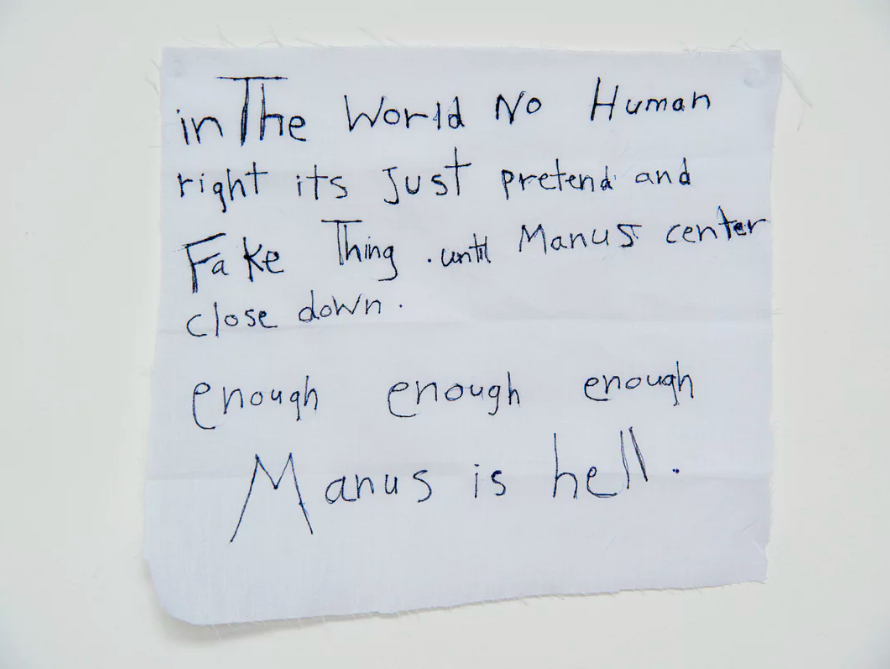 in The World No Human
right its Just pretend and
Fake Thing . until Manus center
close down .
enough enough enough
Manus is hell .